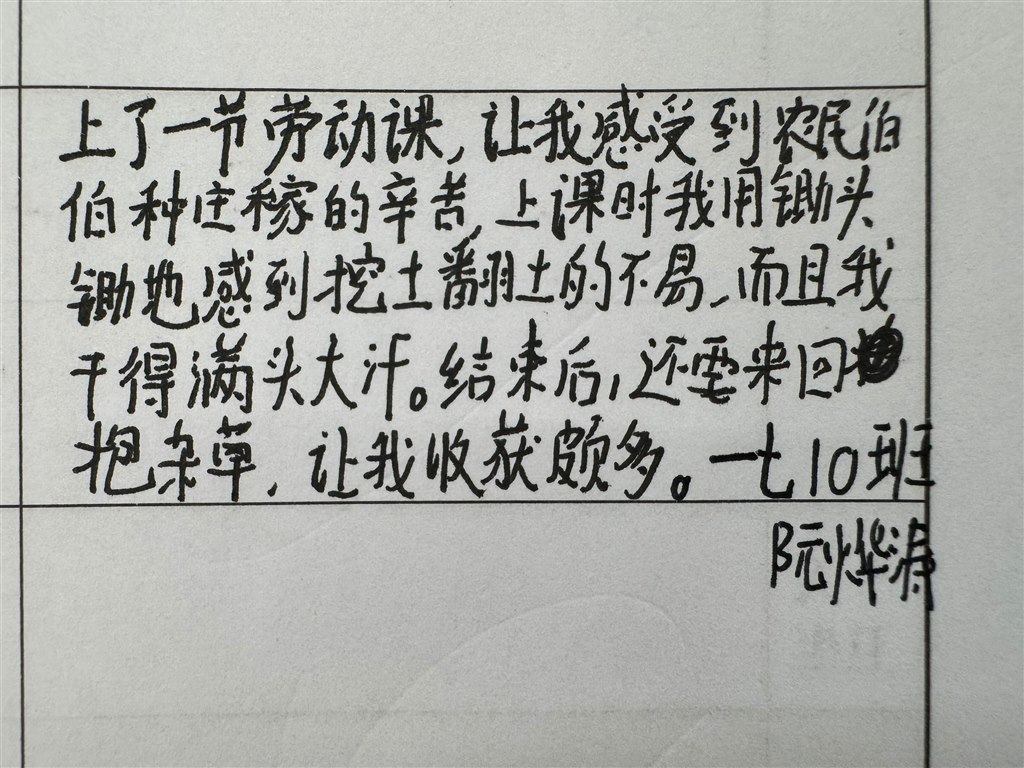 上了一节劳动课,让我感受到农民伯
伯种庄稼的辛苦,上课时我用锄头
锄地感到挖土翻土的不易,而且我
干得满头大汗。结束后,还要来回
抱杂草,让我收获颇多。一七10班
阮烨涛